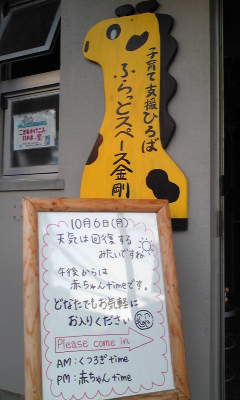 子育て支援ひろば
ふらっとスペース金剛
10月6日(月)
天気は回復する
みたいですね
午後からは
赤ちゃんtimeです。
どなたでもお気軽に
お入りください
Please come in
AM:くつろぎtime
PM:赤ちゃんtime